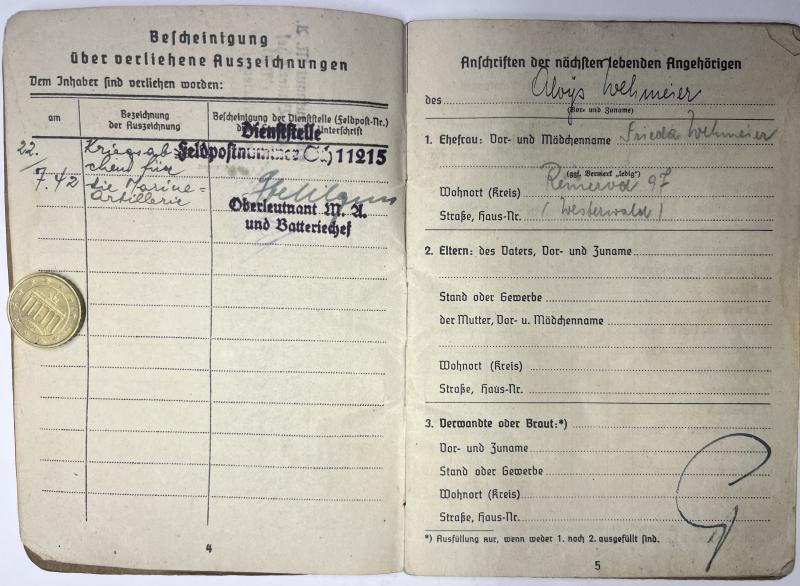 Bescheinigung
über verliehene Auszeichnungen
Dem Inhaber sind verliehen worden:
am
Bezeichnung
der Auszeichnung
Bescheinigung der Dienststelle (Feldpost-Nr.)
Unterschrift
22.
7.42
Kriegsab-
chen für
die Marine=
artillerie
Dienststelle
Feldpostnummer 11215
Oberleutnant M. A.
und Batteriechef
4
Anschriften der nächsten lebenden Angehörigen
des Aloys Wehmeier
(Vor- und Zuname)
1. Ehefrau: Vor- und Mädchenname Frieda Wehmeier
(ggf. Vermerk „ledig")
Wohnort (Kreis) 97
Straße, Haus-Nr. (Westerwald)
2. Eltern: des Vaters, Vor- und Zuname
Stand oder Gewerbe
der Mutter, Vor- u. Mädchenname
Wohnort (Kreis)
Straße, Haus-Nr.
3. Verwandte oder Braut:*)
Vor- und Zuname
Stand oder Gewerbe
Wohnort (Kreis)
Straße, Haus-Nr.
*) Ausfüllung nur, wenn weder 1. noch 2. ausgefüllt sind.
5